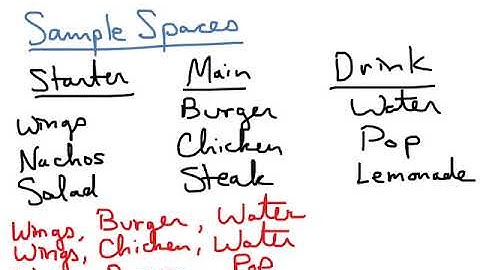 Sample Spaces
Starter Main Drink
Wings Burger Water
Nachos Chicken Pop
Salad Steak Lemonade
Wings, Burger, Water
Wings, Chicken, Water
Pop